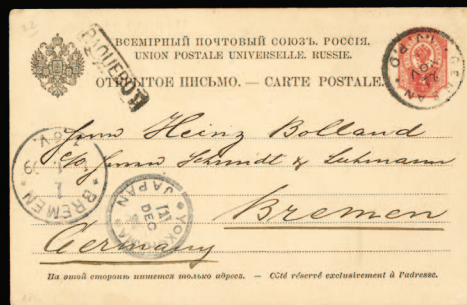 PAQUEBOT
ВСЕМІРНЫЙ ПОЧТОВЫЙ СОЮЗЪ. РОССІЯ.
UNION POSTALE UNIVERSELLE. RUSSIE.
ОТКРЫТОЕ ПИСЬМО. — CARTE POSTALE.
NOV
I.J.P.O.
Herrn Heinz Bolland
c/o Herren Schmidt &
Bremen
Germany
BREMEN
YOK
JAPAN
DEC
На этой сторонѣ пишется только адресъ. — Côté réservé exclusivement à l'adresse.